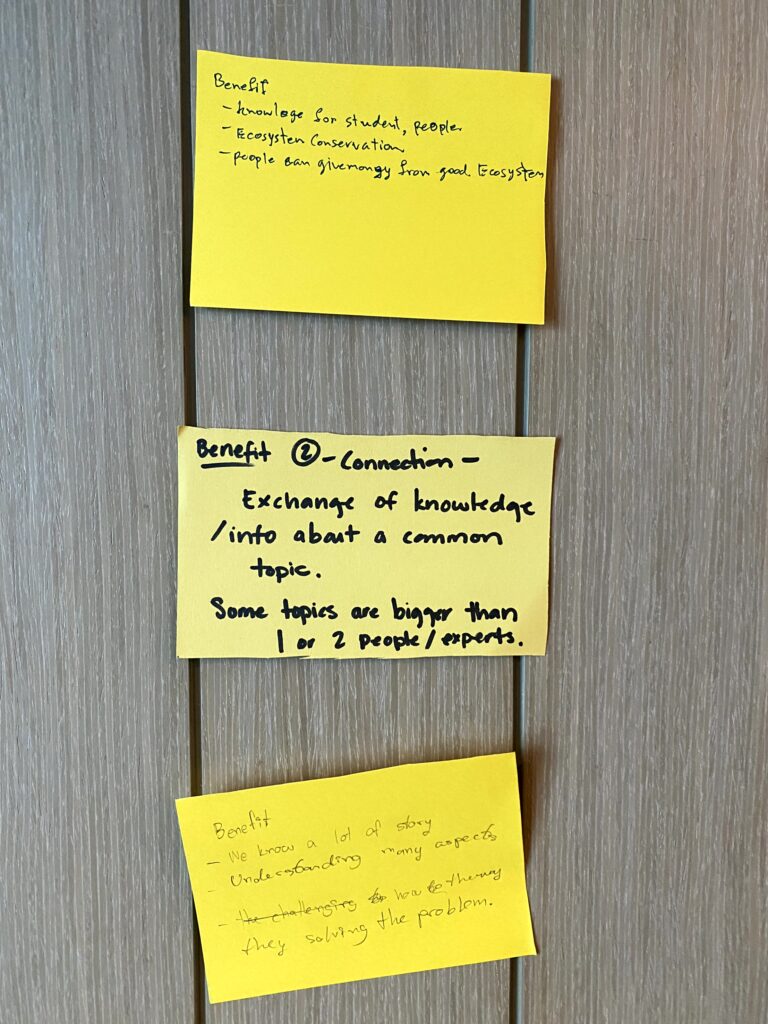 Benefit
- knowloge for student, people
- Ecosysten Conservation
- people can givemongy from good Ecosystem
Benefit ② - Connection -
Exchange of knowledge
/info about a common
topic.
Some topics are bigger than
1 or 2 people/experts.
Benefit
- We know a lot of story
- Understanding many aspects
- the challenging how
they solving the problem.